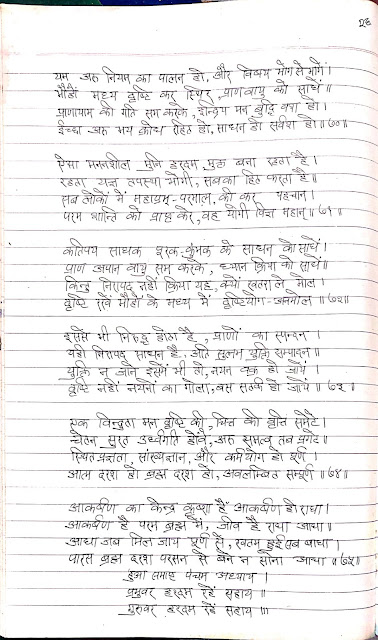 २३
यम अरु नियम का पालन हो, और विषय भोग से भागें।
भौहों मध्य दृष्टि कर स्थिर, प्राणवायु को साधें॥
प्राणायाम की गति सम करके, इन्द्रिय मन बुद्धि वश हो।
ईच्छा अरु भय क्रोध रहित हो, साधन हो सर्वश हो॥७०॥
ऐसा मननशील मुनि हरदम, मुक्त बना रहता है।
रहता यज्ञ तपस्या भोगी, सबका हित करता है॥
सब लोकों में महाप्रभु-परमात्म, की कर पहचान।
परम शान्ति को प्राप्त करे, वह योगी महान्॥७१॥
कतिपय साधक पूरक-कुंभक के साधन को साधें।
प्राण अपान वायु सम करके, ध्यान क्रिया को साधें॥
किन्तु निरापद नहीं क्रिया यह, क्यों खतरा ले मोल।
दृष्टि रखें भौहों के मध्य में दृष्टियोग-अनमोल॥७२॥
इससे भी निरुद्ध होता है, प्राणों का स्पन्दन।
यही निरापद साधन है, अति सुलभ युक्ति सम्पादन॥
युक्ति न जाने इसमें भी तो, नयन वक्र हो जायें।
दृष्टि नहीं नयनों का गोला, बस सटकी हो जायें॥७३॥
एक विन्दुता मन दृष्टि की, चित्त की वृत्ति समेटे।
चेतन सुरत उर्ध्वगति होवे, अरु समत्व तब प्रगटे॥
स्थितप्रज्ञता, सांख्यज्ञान, और कर्मयोग हो पूर्ण।
आत्म दरश हो ब्रह्म दरश हो, अवलम्बित सम्पूर्ण॥७४॥
आकर्षण का केन्द्र कृष्ण है आकर्षण हो राधा।
आकर्षण है परम ब्रह्म में, जीव है राधा आधा॥
आधा जब मिल जाय पूर्ण से, खतम हुई सब बाधा।
पारस ब्रह्म दरश परसन से बन न सोना आधा॥७५॥
हुआ समाप्त पंचम अध्याय।
प्रभुवर हरदम रहें सहाय॥
गुरुवर हरदम रहें सहाय॥